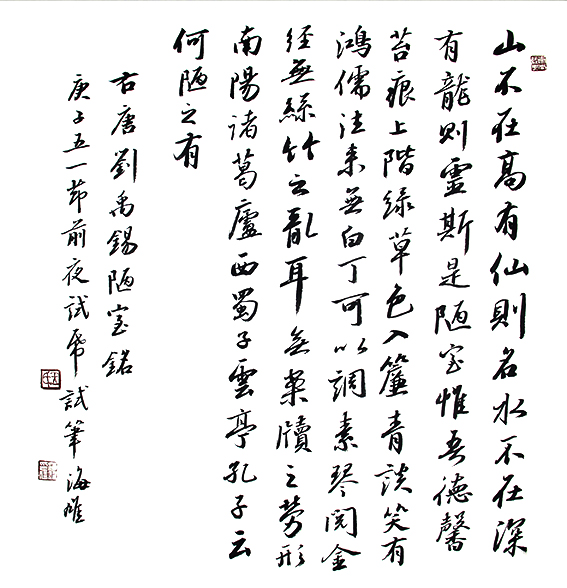 山不在高有仙則名水不在深
有龍則靈斯是陋室惟吾德馨
苔痕上階綠草色入簾青談笑有
鴻儒往來無白丁可以調素琴閱金
經無絲竹之亂耳無案牘之勞形
南陽諸葛廬西蜀子雲亭孔子云
何陋之有
右唐劉禹錫陋室銘
庚子五一節前夜試帋試筆海